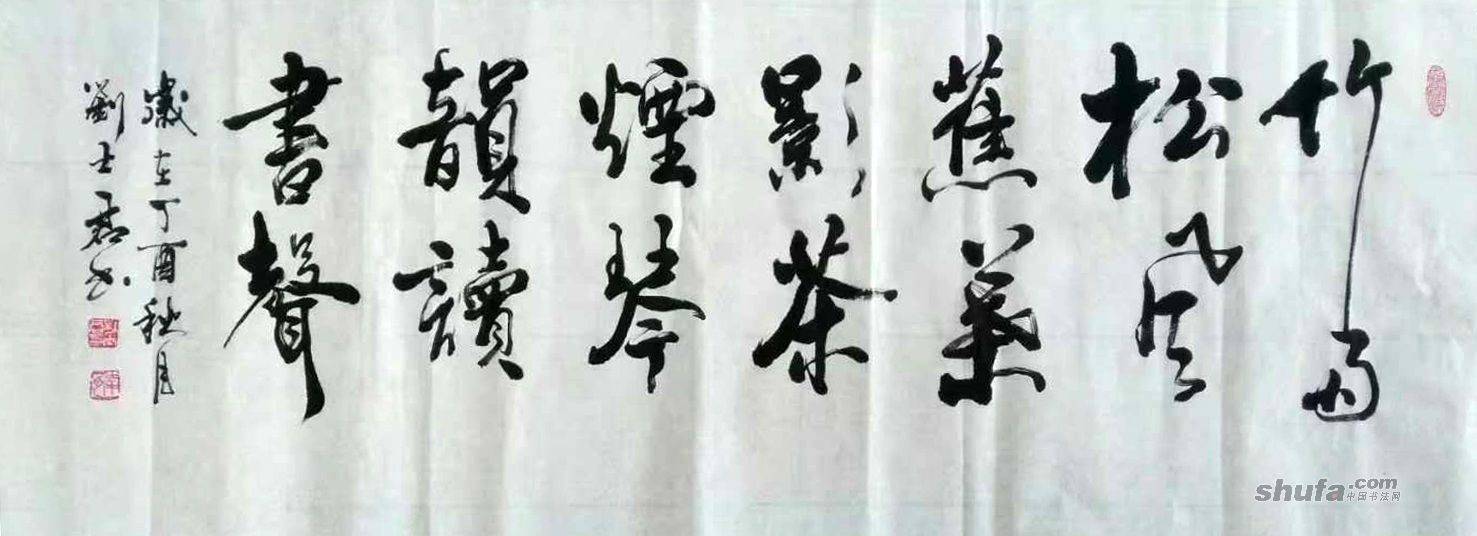 竹雨
松風
蕉葉
影茶
煙琴
韻讀
書聲
歲在丁酉秋月
劉士君书
shufa.com
中国书法网